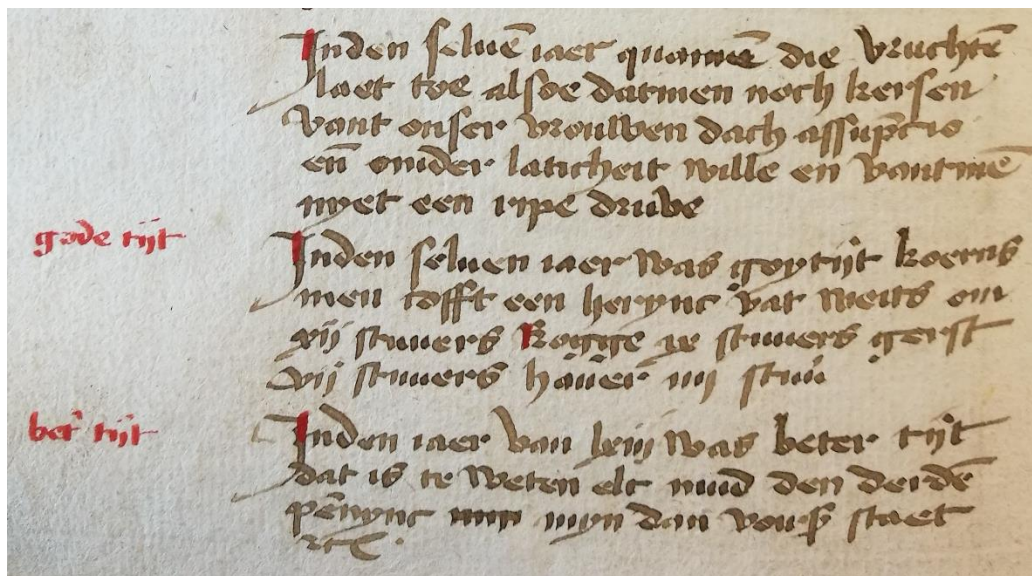 Inden seluē iaer quamē die vruchtē
laet toe alsoe datmen noch kersen
vant onser vrouwen dach assūpcio
eñ onider laticheit wille en vantmē
nyet een ripe druve
gode tijt
Inden seluen iaer was goytijt koerns
men cofft een herync vat weits om
xij stuuers Rogge ix stuuers gerst
vij stuuers hauer iiij stuu'
bet' tijt
Inden iaer van lxiij was beter tijt
dat is te weten elc mud den derdē
pēnync myn dan vours staet